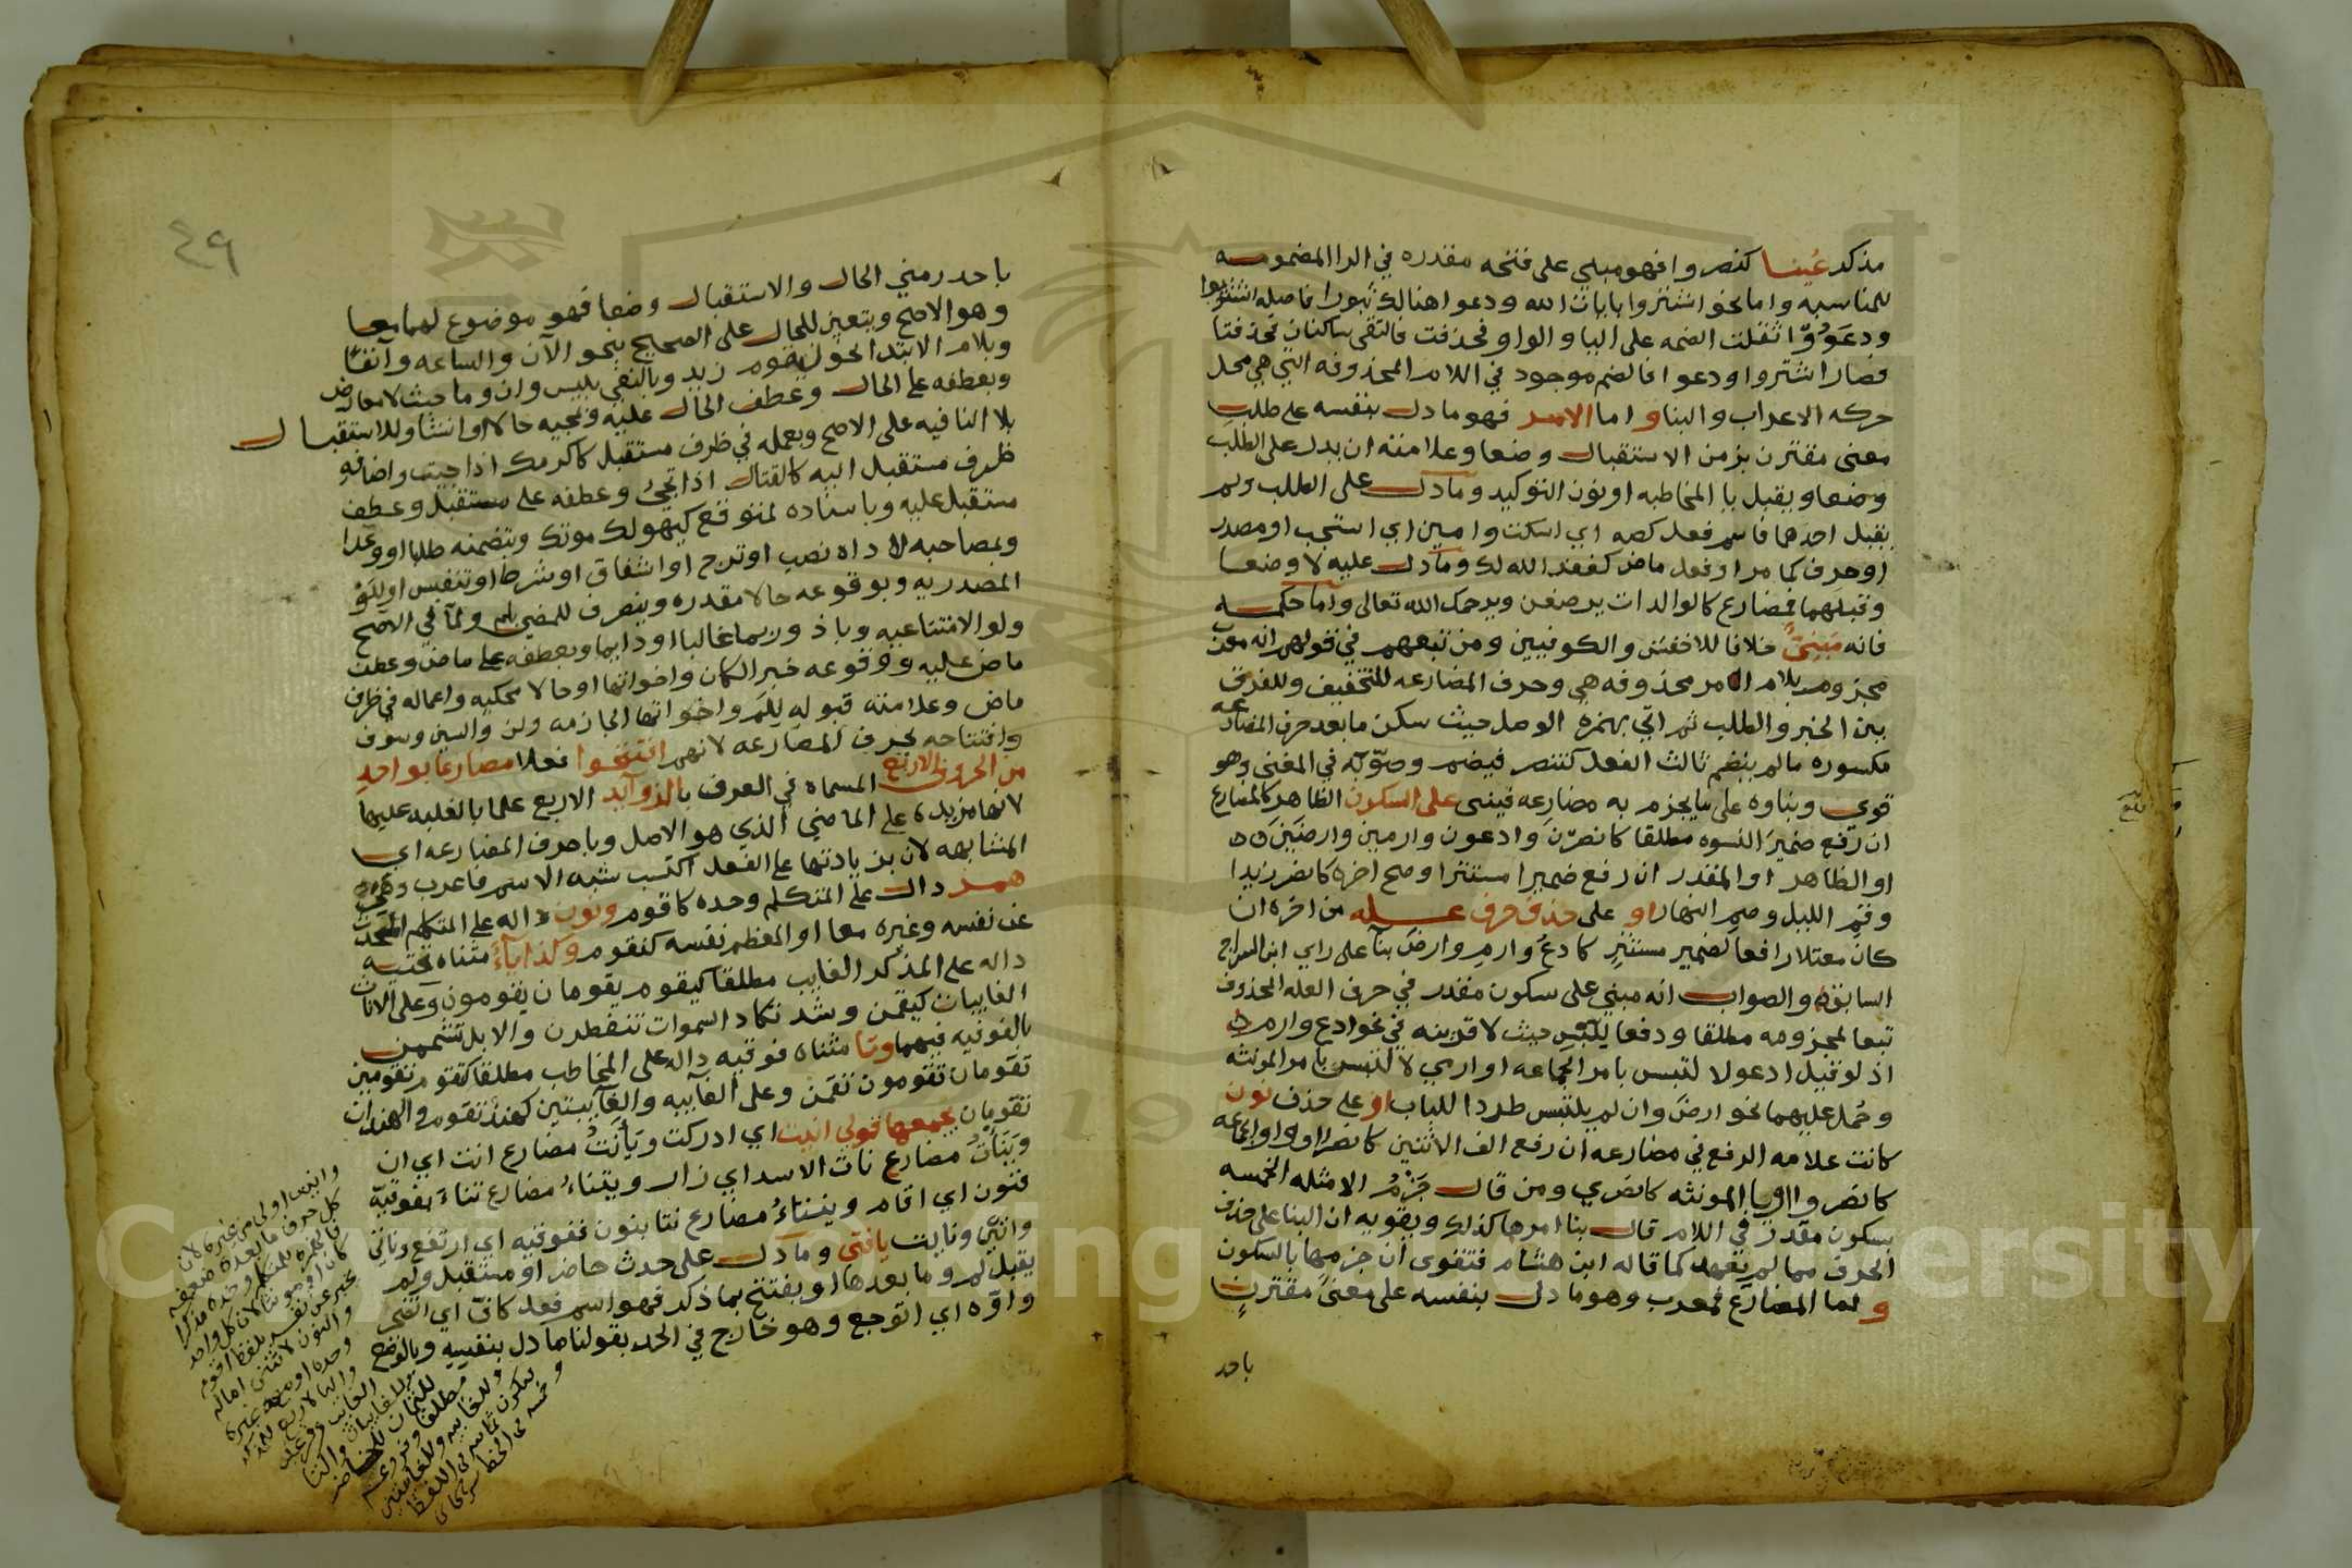 مذكر غيبا كنصروا فهو مبني على فتحه مقدره في الرا المضمومه
للمناسبه واما نحو اشتروا بايات الله ودعوا هنالك ثبورا فاصله اشتريوا
ودعووا ثقلت الضمه على اليا والواو فحذفت فالتقى ساكنان فحذفتا
فصار اشتروا ودعوا فالضم موجود في اللام المحذوفه التي هي محل
حركه الاعراب والبنا واما الامر فهو ما دل بنفسه على طلب
معنى مقترن بزمن الاستقبال وضعا وعلامته ان يدل على الطلب
وضعا ويقبل يا المخاطبه او نون التوكيد وما دل على الطلب ولم
يقبل احدهما فاسم فعل كصه اي اسكت وامين اي استجب او مصدر
او حرف كما مر او فعل ماض كغفر الله لك وما دل عليه لا وضعا
وقبلهما فمضارع كالوالدات يرضعن ويرحمك الله تعالى واما حكمه
فانه مبني خلافا للاخفش والكوفيين ومن تبعهم في قولهم انه معرب
مجزوم بلام امر محذوفه هي وحرف المضارعه للتخفيف وللفرق
بين الخبر والطلب ثم اتي بهمزه الوصل حيث سكن ما بعد حرف المضارعه
مكسوره ما لم ينضم ثالث الفعل كتنصر فيضم وصوبه في المغني وهو
قوي وبناوه على ما يجزم به مضارعه فيبنى على السكون الظاهر كالمضارع
ان رفع ضمير النسوه مطلقا كانصرن وادعون وارمين وارضين
او الظاهر او المقدر ان رفع ضميرا مستترا وصح اخره كانصر زيدا
وقم الليل وصم النهار او على حذف حرف عله من اخره ان
كان معتلا رافعا لضمير مستتر كادع وارم وارض بنا على راي ابن السراج
السابق والصواب انه مبني على سكون مقدر في حرف العله المحذوف
تبعا لمجزومه مطلقا ودفعا للبس حيث لا قرينه في نحو ادع وارم
اذ لو قيل ادعو لا لتبس بامر الجماعه او ارمي لالتبس بامر المونثه
وحمل عليهما نحو ارض وان لم يلتبس طردا للباب او على حذف نون
كانت علامه الرفع في مضارعه ان رفع الف الاثنين كانصرا او واو الجماعه
كانصروا او يا المونثه كانصري ومن قال جزم الامثله الخمسه
بسكون مقدر في اللام قال بنا امرها كذلك ويقويه ان البنا على حذف
الحرف مما لم يعهد كما قاله ابن هشام فتقوى ان جزمها بالسكون
واما المضارع فمعرب وهو ما دل بنفسه على معنى مقترن
باحد
٤٩
باحد زمني الحال والاستقبال وضعا فهو موضوع لهما معا
وهو الاصح ويتعين للحال على الصحيح بنحو الآن والساعه وآنفا
وبلام الابتدا نحو ليقوم زيد وبالنفي بليس وان وما حيث لا معارض
وبعطفه على الحال وعطف الحال عليه ومجيه حالا او انشا وللاستقبال
بلا النافيه على الاصح وبعمله في ظرف مستقبل كاكرمك اذا جيت واضافه
ظرف مستقبل اليه كالقتال اذا تجيء وعطفه على مستقبل وعطف
مستقبل عليه وباسناده لمتوقع كيهولك موتك وبتضمنه طلبا او وعدا
وبمصاحبه اداه نصب او ترج او اشفاق او شرط او تنفيس او لو
المصدريه وبوقوعه حالا مقدره وينصرف للمضي بلم ولما في الاصح
ولو الامتناعيه وباذ وربما غالبا او دايما وبعطفه على ماض وعطف
ماض عليه ووقوعه خبرا لكان واخواتها او حالا محكيه واعماله في ظرف
ماض وعلامته قبوله للم واخواتها الجازمه ولن والسين وسوف
وافتتاحه بحرف المضارعه لانهم افتتحوا فعلا مضارعا بواحد
من الحروف الاربع المسماه في العرف بالزوآيد الاربع علما بالغلبه عليها
لانها مزيده على الماضي الذي هو الاصل وباحرف المضارعه اي
المشابهه لان بزيادتها على الفعل اكتسب شبه الاسم فاعرب وهي
همز دال على المتكلم وحده كاقوم ونون داله على المتكلم المتحدث
عن نفسه وغيره معا او المعظم نفسه كنقوم وكذا يآء مثناه تحتيه
داله على المذكر الغايب مطلقا كيقوم يقومان يقومون وعلى الاناث
الغايبات كيقمن وشذ تكاد السموات تتفطرن والابل تشممن
بالفوقيه فيهما وتا مثناه فوقيه داله على المخاطب مطلقا كتقوم تقومين
تقومان تقومون تقمن وعلى الغآيبه والغآيبتين كهند تقوم والهندان
تقومان يجمعها قولي انيت اي ادركت ويأنت مضارع انت اي ان
وينأت مضارع نات الاسد اي زار ويتناء مضارع تناء بفوقيه
فنون اي اقام وينتاء مضارع نتا بنون ففوقيه اي ارتفع وناتي
وانتي ونايت يانتى وما دل على حدث حاضر او مستقبل ولم
يقبل لم وما بعدها او يفتتح بما ذكر فهو اسم فعل كاف اي اتضجر
واوه اي اتوجع وهو خارج في الحد بقولنا ما دل بنفسه وبالوضع
وانيت اولى من غيره لان
كل حرف ما بعده ضعفه
فالهمزه للمتكلم وحده مذكرا
كان او مونثا لان كل واحد
يخبر عن نفسه بلفظ اقوم
والنون لاثنين امثاله
وحده او معه غيره
واليا لاربع للمذكر
الغائب وفرعيه
وللغايبات والتا
لثمان للمخاضر
مطلقا وفروعه
وللغايبه وللغايبتين